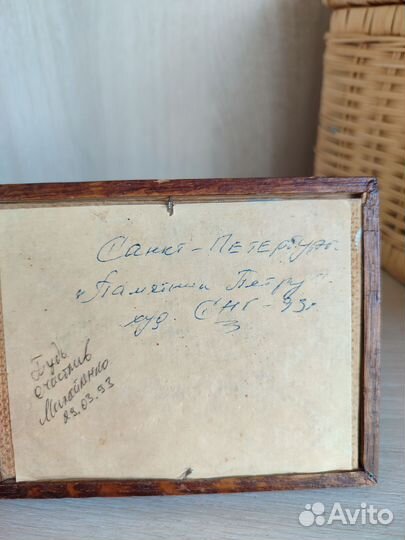 Санкт-Петербург
"Памятник Петру"
худ. СНГ-93г
Будь
счастлив
Михайленко
29.03.93
Avito